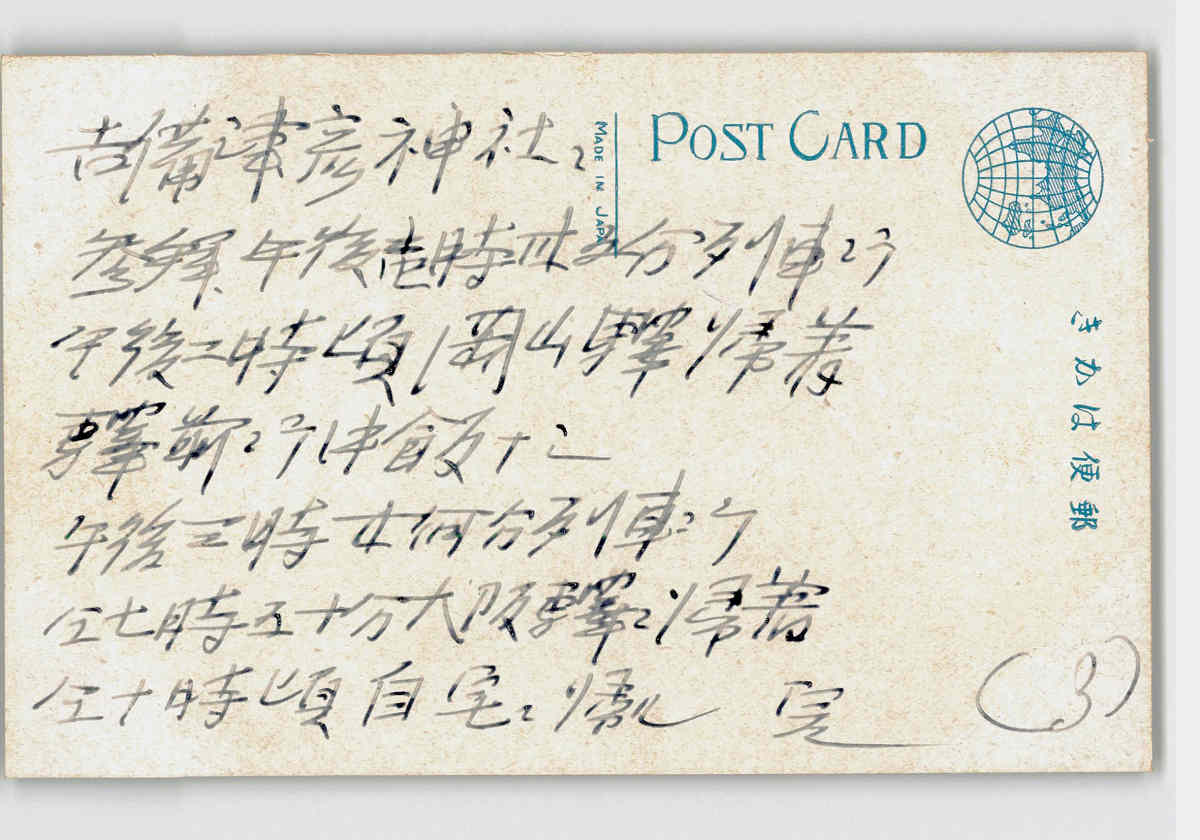 吉備津彦神社ニ
参拝、午後壱時廿五分列車ニテ
午後二時頃岡山驛帰着
驛前ニテ
午後三時廿何分列車ニテ
仝七時五十分大阪驛ニ帰着
仝十時頃自宅ニ帰ル 完
(3)
POST CARD
MADE IN JAPA
きかは便郵